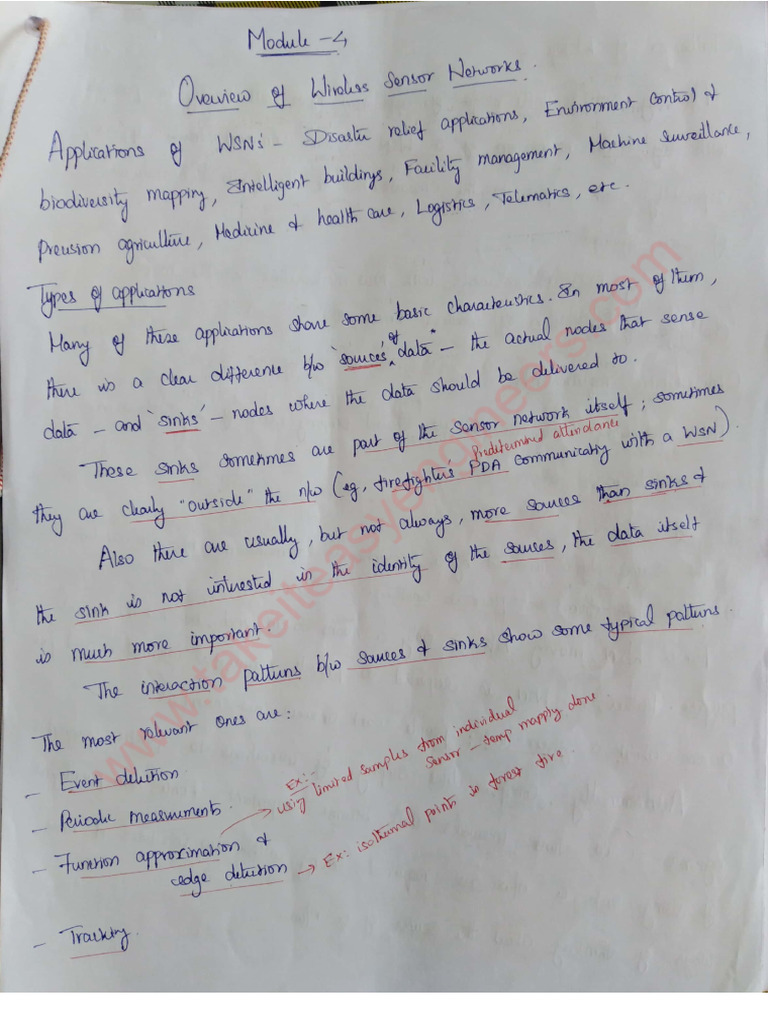 Module - 4
Overview of Wireless Sensor Networks.
Applications of WSN's - Disaster relief applications, Environment control &
biodiversity mapping, Intelligent buildings, Facility management, Machine surveillance,
Precision agriculture, Medicine & health care, Logistics, Telematics, etc.
Types of applications
Many of these applications share some basic characteristics. In most of them,
there is a clear difference b/w 'sources' of data" - the actual nodes that sense
data - and 'sinks' - nodes where the data should be delivered to.
These sinks sometimes are part of the sensor network itself; sometimes
Predetermined attendance
they are clearly "outside" the n/w (eg, firefighters PDA communicatig with a WSN).
Also there are usually, but not always, more sources than sinks &
the sink is not interested in the identity of the sources, the data itself
is much more important.
The interaction patterns b/w sources & sinks show some typical patterns.
The most relevant ones are:
- Event detection
- Periodic measurements.
- Function approximation &
edge detection
Ex:-
using limited samples from individual
sensor - temp mappig done.
→ Ex: isothermal points in forest fire.
- Tracking.
www.takeiteasyengineers.com